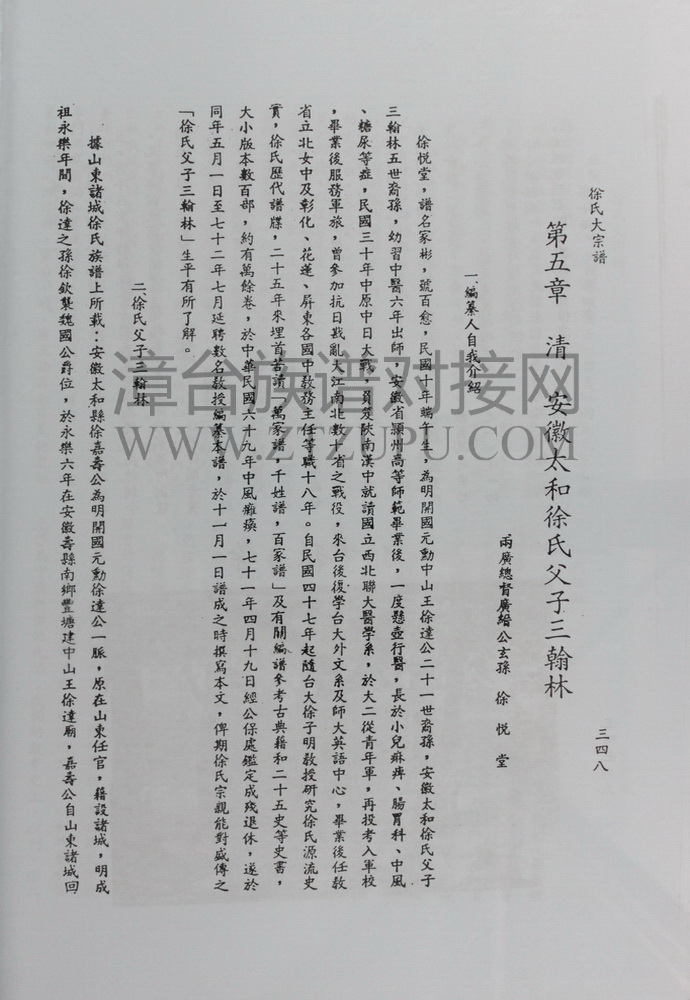 徐氏大宗譜
三四八
第五章　清　安徽太和徐氏父子三翰林
兩廣總督廣縉公玄孫　徐　悅　堂
一、編纂人自我介紹
徐悅堂，譜名家彬，號百愈，民國十年端午生，為明開國元勳中山王徐達公二十一世裔孫，安徽太和徐氏父子
三翰林五世裔孫，幼習中醫六年出師，安徽省頴州高等師範畢業後，一度懸壺行醫，長於小兒痳痺、腸胃科、中風
、糖尿等症，民國三十年中原中日大戰，負笈陝南漢中就請國立西北聯大醫學系，於大二從青年軍，再投考入軍校
，畢業後服務軍旅，曾參加抗日戡亂大江南北數十省之戰役，來台後復學台大外文系及師大英語中心，畢業後任教
省立北女中及彰化、花蓮、屏東各國中教務主任等職十八年。自民國四十七年起隨台大徐子明教授研究徐氏源流史
實，徐氏歷代譜牒，二十五年來埋首苦請「萬家譜，千姓譜，百家譜」及有關編譜參考古典籍和二十五史等史書，
大小版本數百部，約有萬餘卷，於中華民國六十九年中風癱瘓，七十一年四月十九日經公保處鑑定成殘退休，遂於
同年五月一日至七十二年七月延聘數名教授編纂本譜，於十一月一日譜成之時撰寫本文，俾期徐氏宗親能對盛傳之
「徐氏父子三翰林」生平有所了解。
二、徐氏父子三翰林
據山東諸城徐氏族譜上所載：安徽太和縣徐嘉壽公為明開國元勳徐達公一脈，原在山東任官，籍設諸城，明成
祖永樂年間，徐達之孫徐欽襲魏國公爵位，於永樂六年在安徽壽縣南鄉豐塘建中山王徐達廟，嘉壽公自山東諸城回
漳台族谱对接网
WWW.ZTZUPU.COM